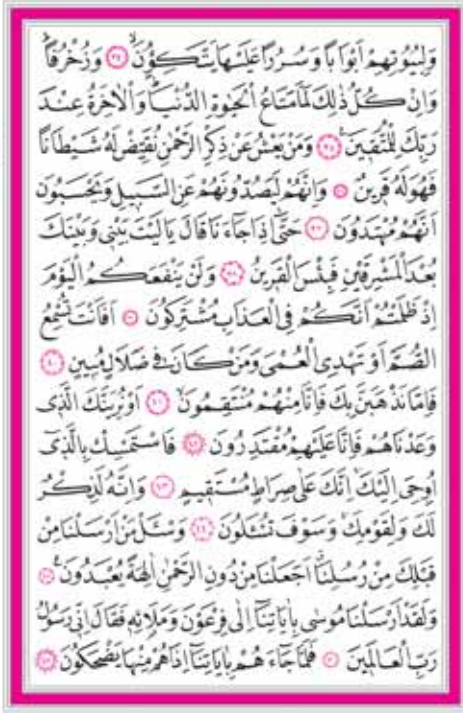 وَلِبُيُوتِهِمْ اَبْوَابًا وَسُرُرًا عَلَيْهَا يَتَّكِؤُنَۙ ﴿٣٤﴾ وَزُخْرُفًاۜ
وَاِنْ كُلُّ ذٰلِكَ لَمَّا مَتَاعُ الْحَيٰوةِ الدُّنْيَاۜ وَالْاٰخِرَةُ عِنْدَ
رَبِّكَ لِلْمُتَّق۪ينَ۟ ﴿٣٥﴾ وَمَنْ يَعْشُ عَنْ ذِكْرِ الرَّحْمٰنِ نُقَيِّضْ لَهُ شَيْطَانًا
فَهُوَ لَهُ قَر۪ينٌ ﴿٣٦﴾ وَاِنَّهُمْ لَيَصُدُّونَهُمْ عَنِ السَّب۪يلِ وَيَحْسَبُونَ
اَنَّهُمْ مُهْتَدُونَ ﴿٣٧﴾ حَتّٰٓى اِذَا جَٓاءَنَا قَالَ يَا لَيْتَ بَيْن۪ي وَبَيْنَكَ
بُعْدَ الْمَشْرِقَيْنِ فَبِئْسَ الْقَر۪ينُ ﴿٣٨﴾ وَلَنْ يَنْفَعَكُمُ الْيَوْمَ
اِذْ ظَلَمْتُمْ اَنَّكُمْ فِي الْعَذَابِ مُشْتَرِكُونَ ﴿٣٩﴾ اَفَاَنْتَ تُسْمِعُ
الصُّمَّ اَوْ تَهْدِي الْعُمْيَ وَمَنْ كَانَ ف۪ي ضَلَالٍ مُب۪ينٍ ﴿٤٠﴾
فَاِمَّا نَذْهَبَنَّ بِكَ فَاِنَّا مِنْهُمْ مُنْتَقِمُونَۙ ﴿٤١﴾ اَوْ نُرِيَنَّكَ الَّذ۪ي
وَعَدْنَاهُمْ فَاِنَّا عَلَيْهِمْ مُقْتَدِرُونَ ﴿٤٢﴾ فَاسْتَمْسِكْ بِالَّذ۪ٓي
اُو۫حِيَ اِلَيْكَۚ اِنَّكَ عَلٰى صِرَاطٍ مُسْتَق۪يمٍ ﴿٤٣﴾ وَاِنَّهُ لَذِكْرٌ
لَكَ وَلِقَوْمِكَۚ وَسَوْفَ تُسْـَٔلُونَ ﴿٤٤﴾ وَسْـَٔلْ مَنْ اَرْسَلْنَا مِنْ
قَبْلِكَ مِنْ رُسُلِنَاۗ اَجَعَلْنَا مِنْ دُونِ الرَّحْمٰنِ اٰلِهَةً يُعْبَدُونَ۟ ﴿٤٥﴾
وَلَقَدْ اَرْسَلْنَا مُوسٰى بِاٰيَاتِنَٓا اِلٰى فِرْعَوْنَ وَمَلَا۬ئِه۪ فَقَالَ اِنّ۪ي رَسُولُ
رَبِّ الْعَالَم۪ينَ ﴿٤٦﴾ فَلَمَّا جَٓاءَهُمْ بِاٰيَاتِنَٓا اِذَا هُمْ مِنْهَا يَضْحَكُونَ ﴿٤٧﴾